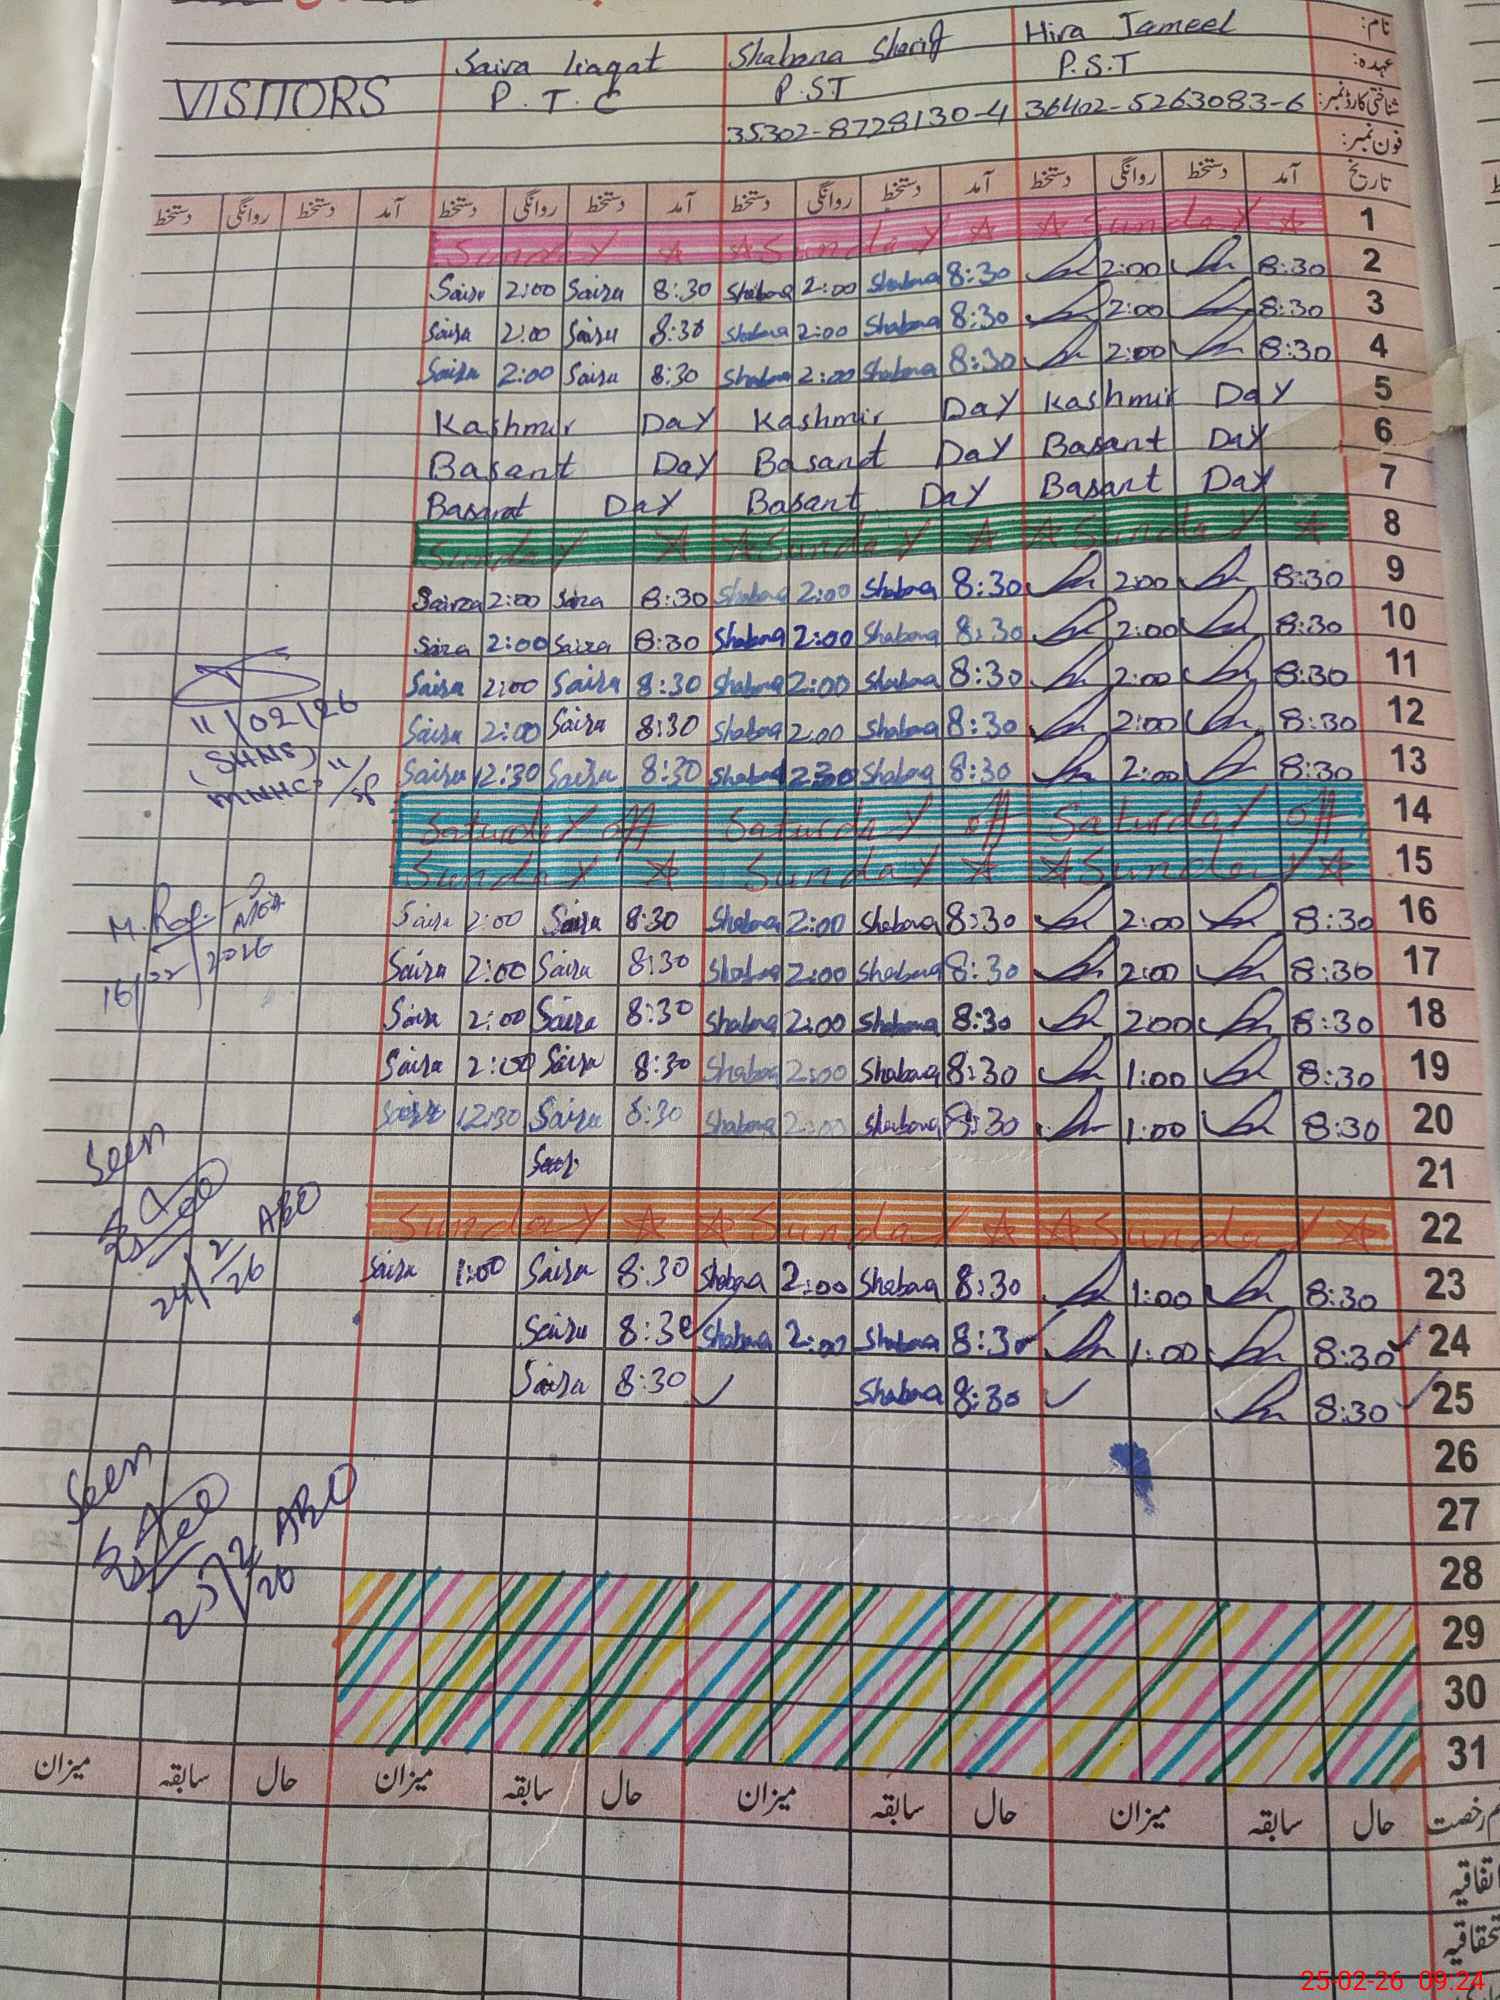 VISITORS Saira Liaqat Shabana Sharif Hira Jameel نام:
P.T.C P.ST P.S.T عہدہ:
35302-8728130-4 36402-5263083-6 شناختی کارڈ نمبر:
فون نمبر:
دستخط روانگی دستخط آمد دستخط روانگی دستخط آمد دستخط روانگی دستخط آمد دستخط روانگی دستخط آمد تاریخ
Sunday Sunday Sunday 1
Saira 2:00 Saira 8:30 Shabana 2:00 Shabana 8:30 2:00 8:30 2
Saira 2:00 Saira 8:30 Shabana 2:00 Shabana 8:30 2:00 8:30 3
Saira 2:00 Saira 8:30 Shabana 2:00 Shabana 8:30 2:00 8:30 4
Kashmir Day Kashmir Day Kashmir Day 5
Basant Day Basant Day Basant Day 6
Basant Day Basant Day Basant Day 7
Sunday Sunday Sunday 8
Saira 2:00 Saira 8:30 Shabana 2:00 Shabana 8:30 2:00 8:30 9
Saira 2:00 Saira 8:30 Shabana 2:00 Shabana 8:30 2:00 8:30 10
Saira 2:00 Saira 8:30 Shabana 2:00 Shabana 8:30 2:00 8:30 11
11/02/26
Saira 2:00 Saira 8:30 Shabana 2:00 Shabana 8:30 2:00 8:30 12
(SHNS)
Saira 12:30 Saira 8:30 Shabana Shabana 8:30 2:00 8:30 13
Saturday off Saturday off Saturday off 14
Sunday Sunday Sunday 15
Saira 2:00 Saira 8:30 Shabana 2:00 Shabana 8:30 2:00 8:30 16
16/02/2026
Saira 2:00 Saira 8:30 Shabana 2:00 Shabana 8:30 2:00 8:30 17
Saira 2:00 Saira 8:30 Shabana 2:00 Shabana 8:30 2:00 8:30 18
Saira 2:00 Saira 8:30 Shabana 2:00 Shabana 8:30 1:00 8:30 19
Saira 12:30 Saira 8:30 Shabana 2:00 Shabana 8:30 1:00 8:30 20
Seen
21
Sunday Sunday Sunday 22
AEO
24/2/26
Saira 1:00 Saira 8:30 Shabana 2:00 Shabana 8:30 1:00 8:30 23
Saira 8:30 Shabana 2:00 Shabana 8:30 1:00 8:30 24
Saira 8:30 Shabana 8:30 8:30 25
26
Seen
AEO
27
28
29
30
31
میزان سابقہ حال میزان سابقہ حال میزان سابقہ حال میزان سابقہ حال رخصت
اتفاقیہ
25-02-26 09:24